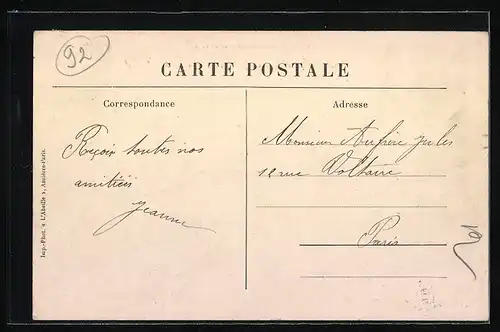 92
CARTE POSTALE
Correspondance
Adresse
Reçois toutes nos
amitiés
Jeanne
Monsieur Jules
12 rue Voltaire
Paris
Imp.-Phot. « L'Abeille », Asnières-Paris.